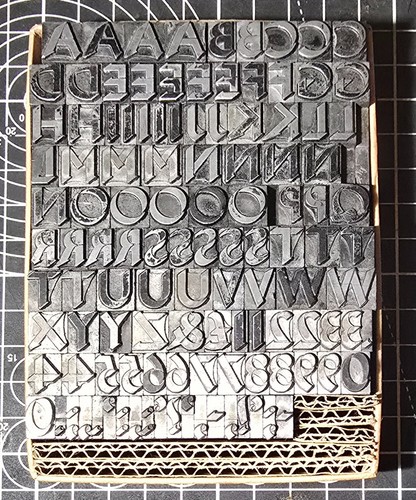 A A A A B B C C C
D D E E E E E F G G
H H I I I I J J K L L
L M M M N N N N N
N O O O O O O P P Q
R R R R S S S S S T T
T T U U U V V W W
X Y Y Z & & 1 1 2 2 3 3
4 4 5 5 6 6 7 7 8 8 9 9 0
0